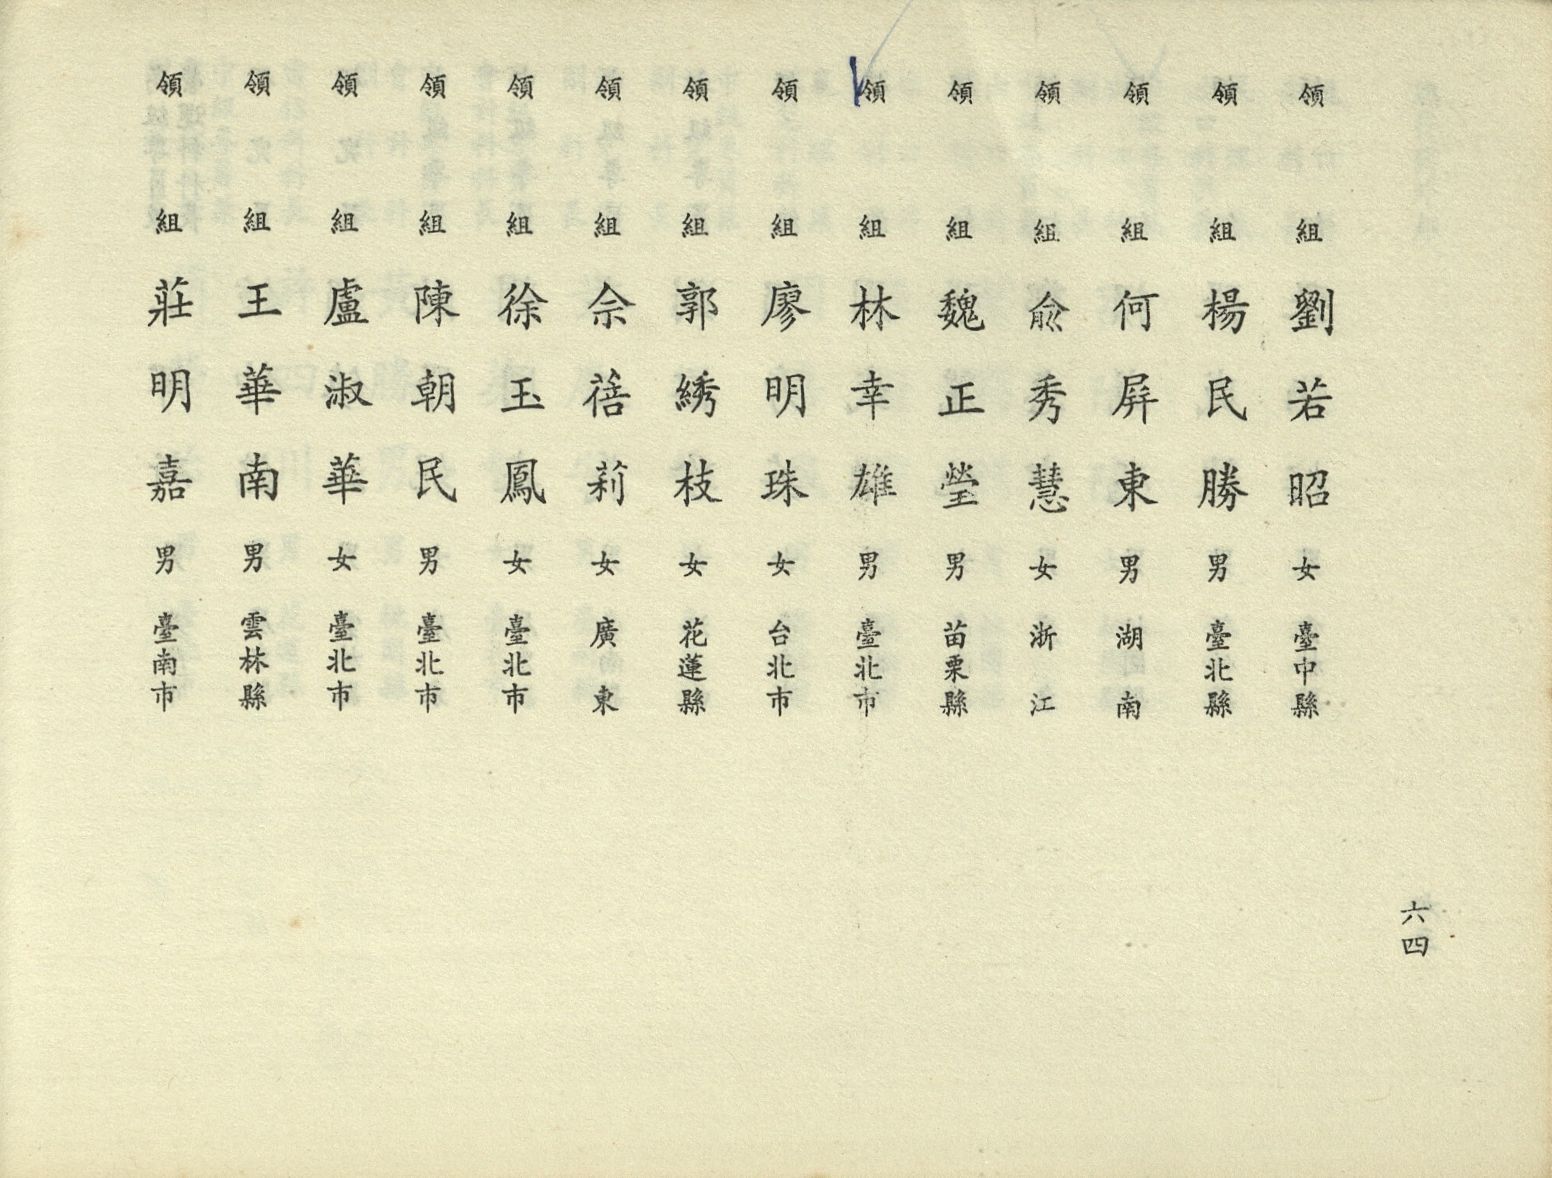 六四
領組 劉若昭 女 臺中縣
領組 楊民勝 男 臺北縣
領組 何屏東 男 湖南
領組 兪秀慧 女 浙江
領組 魏正瑩 男 苗栗縣
領組 林幸雄 男 臺北市
領組 廖明珠 女 台北市
領組 郭綉枝 女 花蓮縣
領組 佘蓓莉 女 廣東
領組 徐玉鳳 女 臺北市
領組 陳朝民 男 臺北市
領組 盧淑華 女 臺北市
領組 王華南 男 雲林縣
領組 莊明嘉 男 臺南市